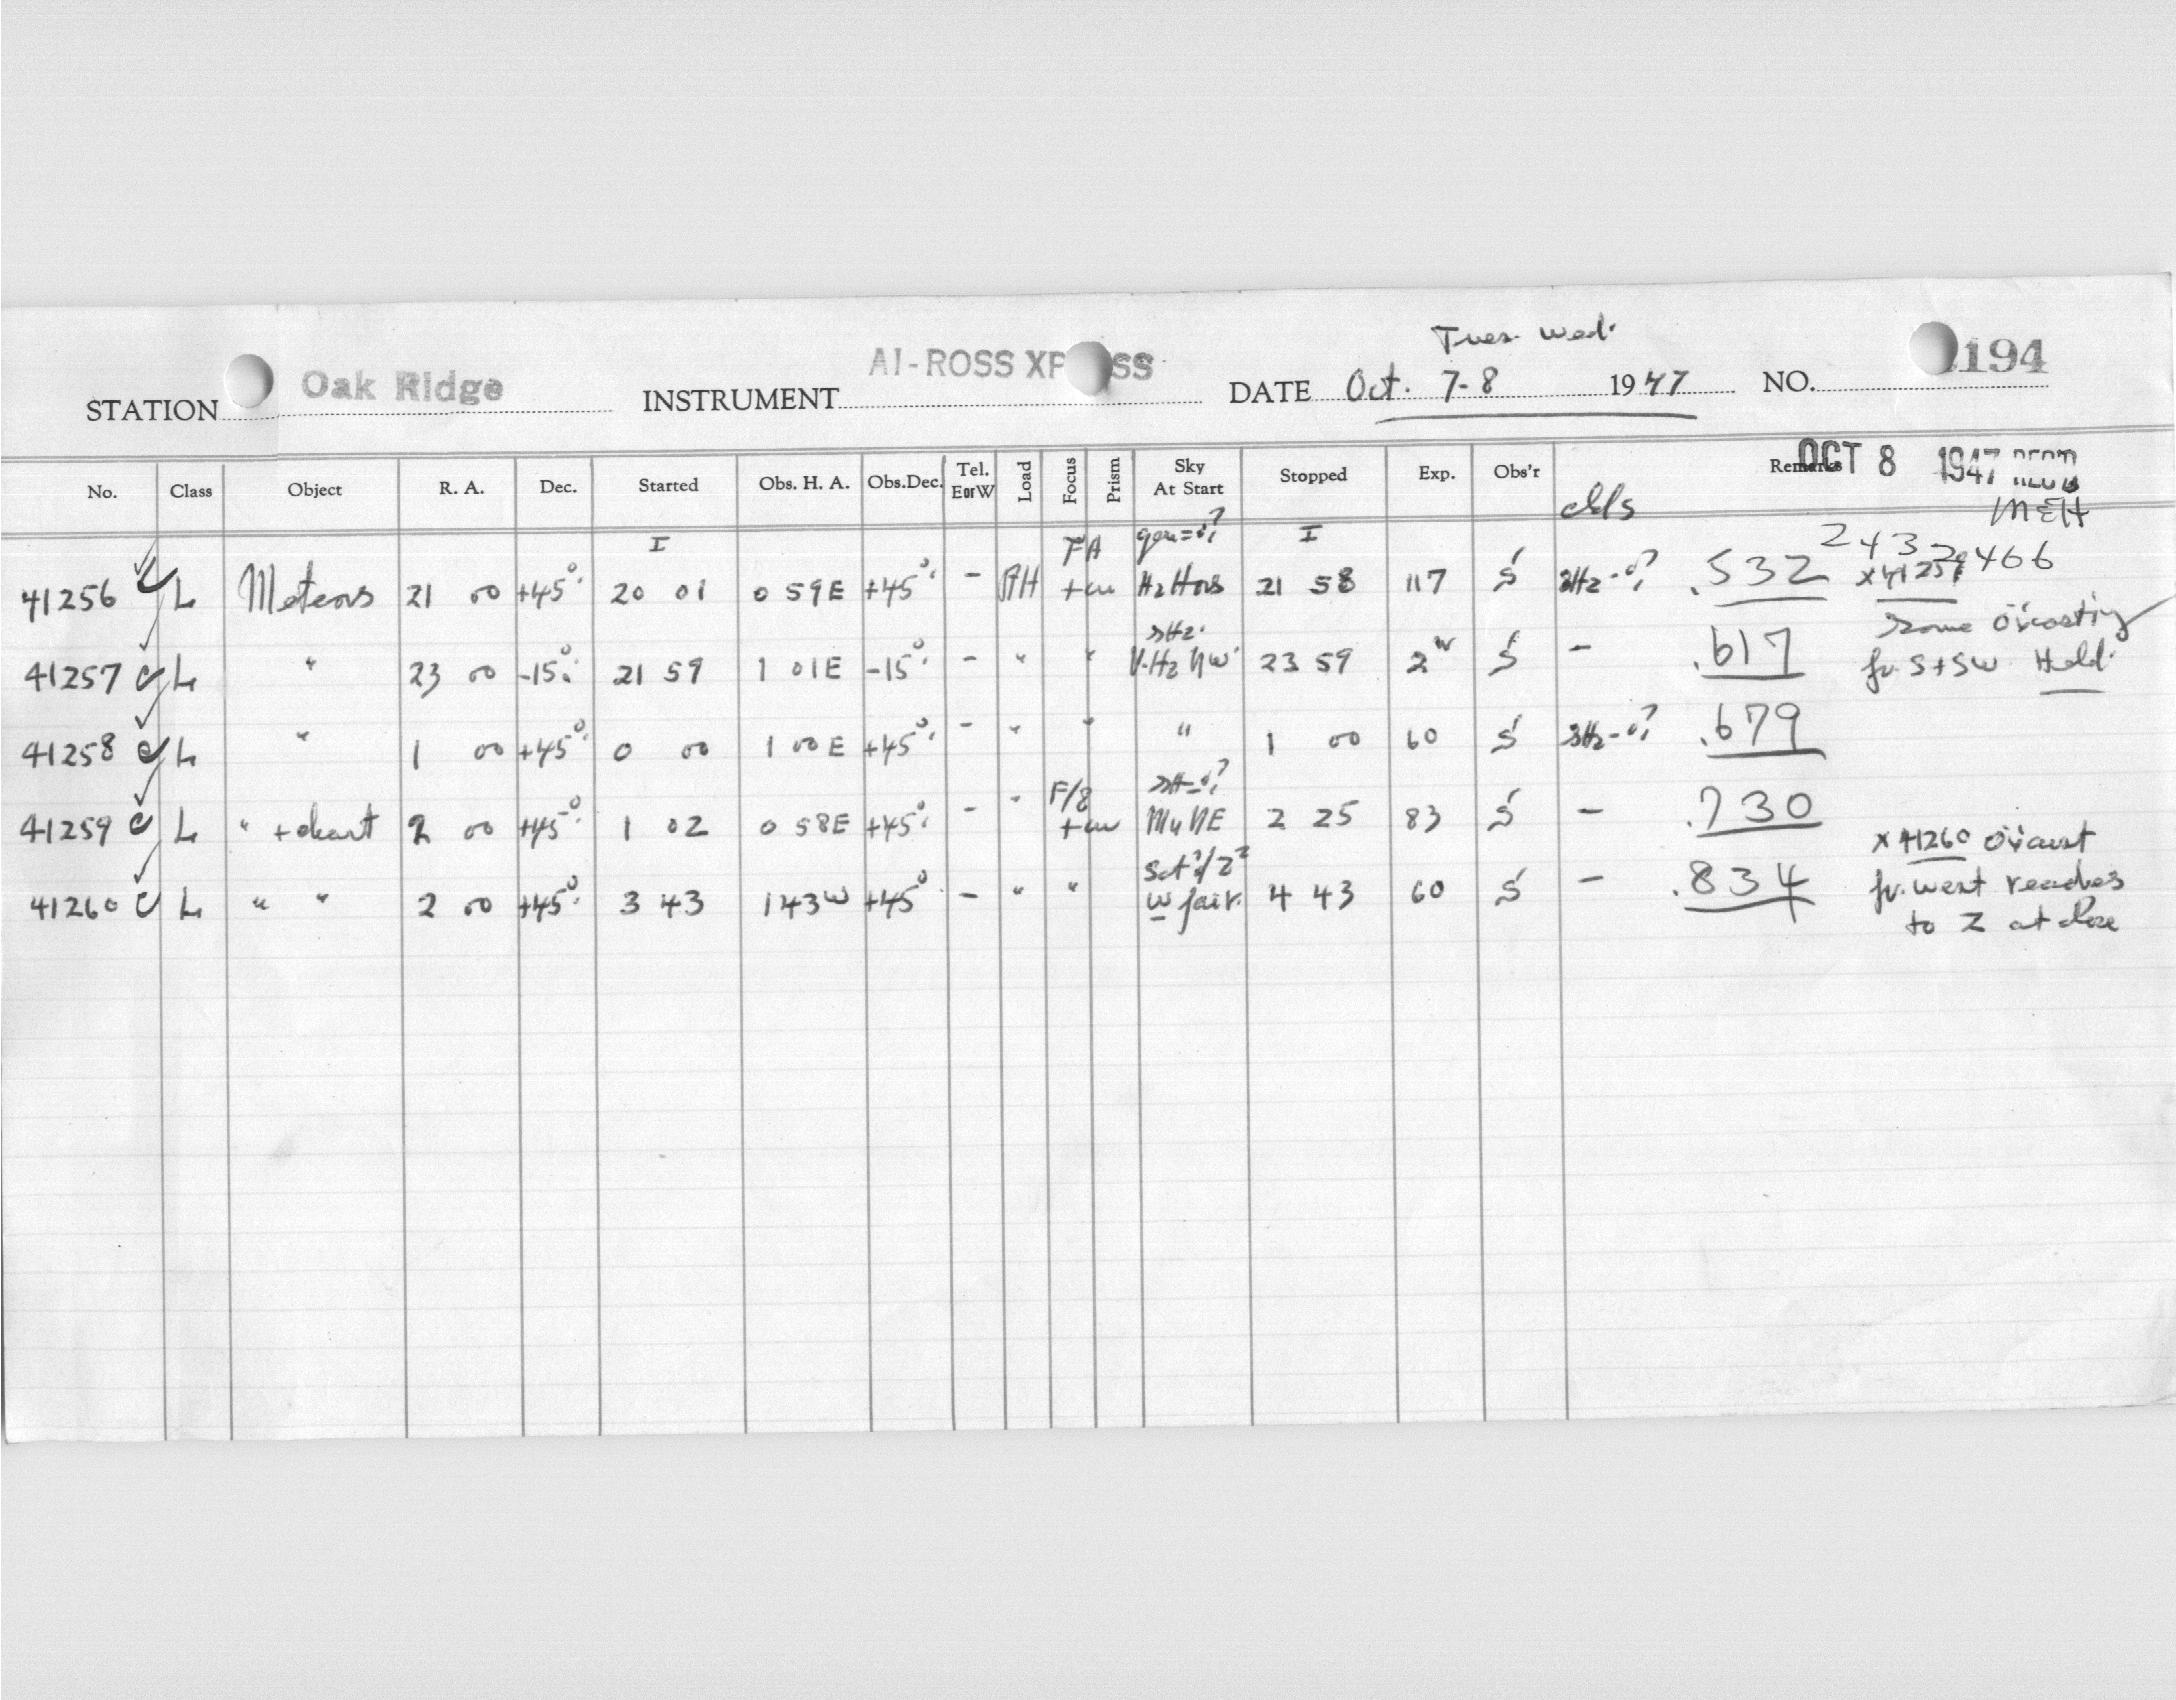 Tues. Wed.
STATION Oak Ridge INSTRUMENT AI-ROSS XP SS DATE Oct. 7-8 1947 NO. 194
OCT 8 1947 REC'D
No. Class Object R. A. Dec. Started Obs. H. A. Obs.Dec. Tel. E or W Load Focus Prism Sky At Start Stopped Exp. Obs'r Remarks
MEH
I FA I 2432466
41256 c L Meteors 21 00 +45° 20 01 0 59E +45° - +cw Hz Hors 21 58 117 S .532
Some o'casting
41257 c L " 23 00 -15° 21 59 1 01E -15° - " " V.Hz NW 23 59 2 S - .617 fr. S+SW Held.
41258 c L " 1 00 +45° 0 00 1 00E +45° - " " " 1 00 60 S .679
F/8
41259 c L " + 2 00 +45° 1 02 0 58E +45° - " +cw NE 2 25 83 S - .730
x 41260 o'cast
41260 c L " " 2 00 +45° 3 43 1 43W +45° - " " W fair. 4 43 60 S - .834 fr. west reaches
to Z at close